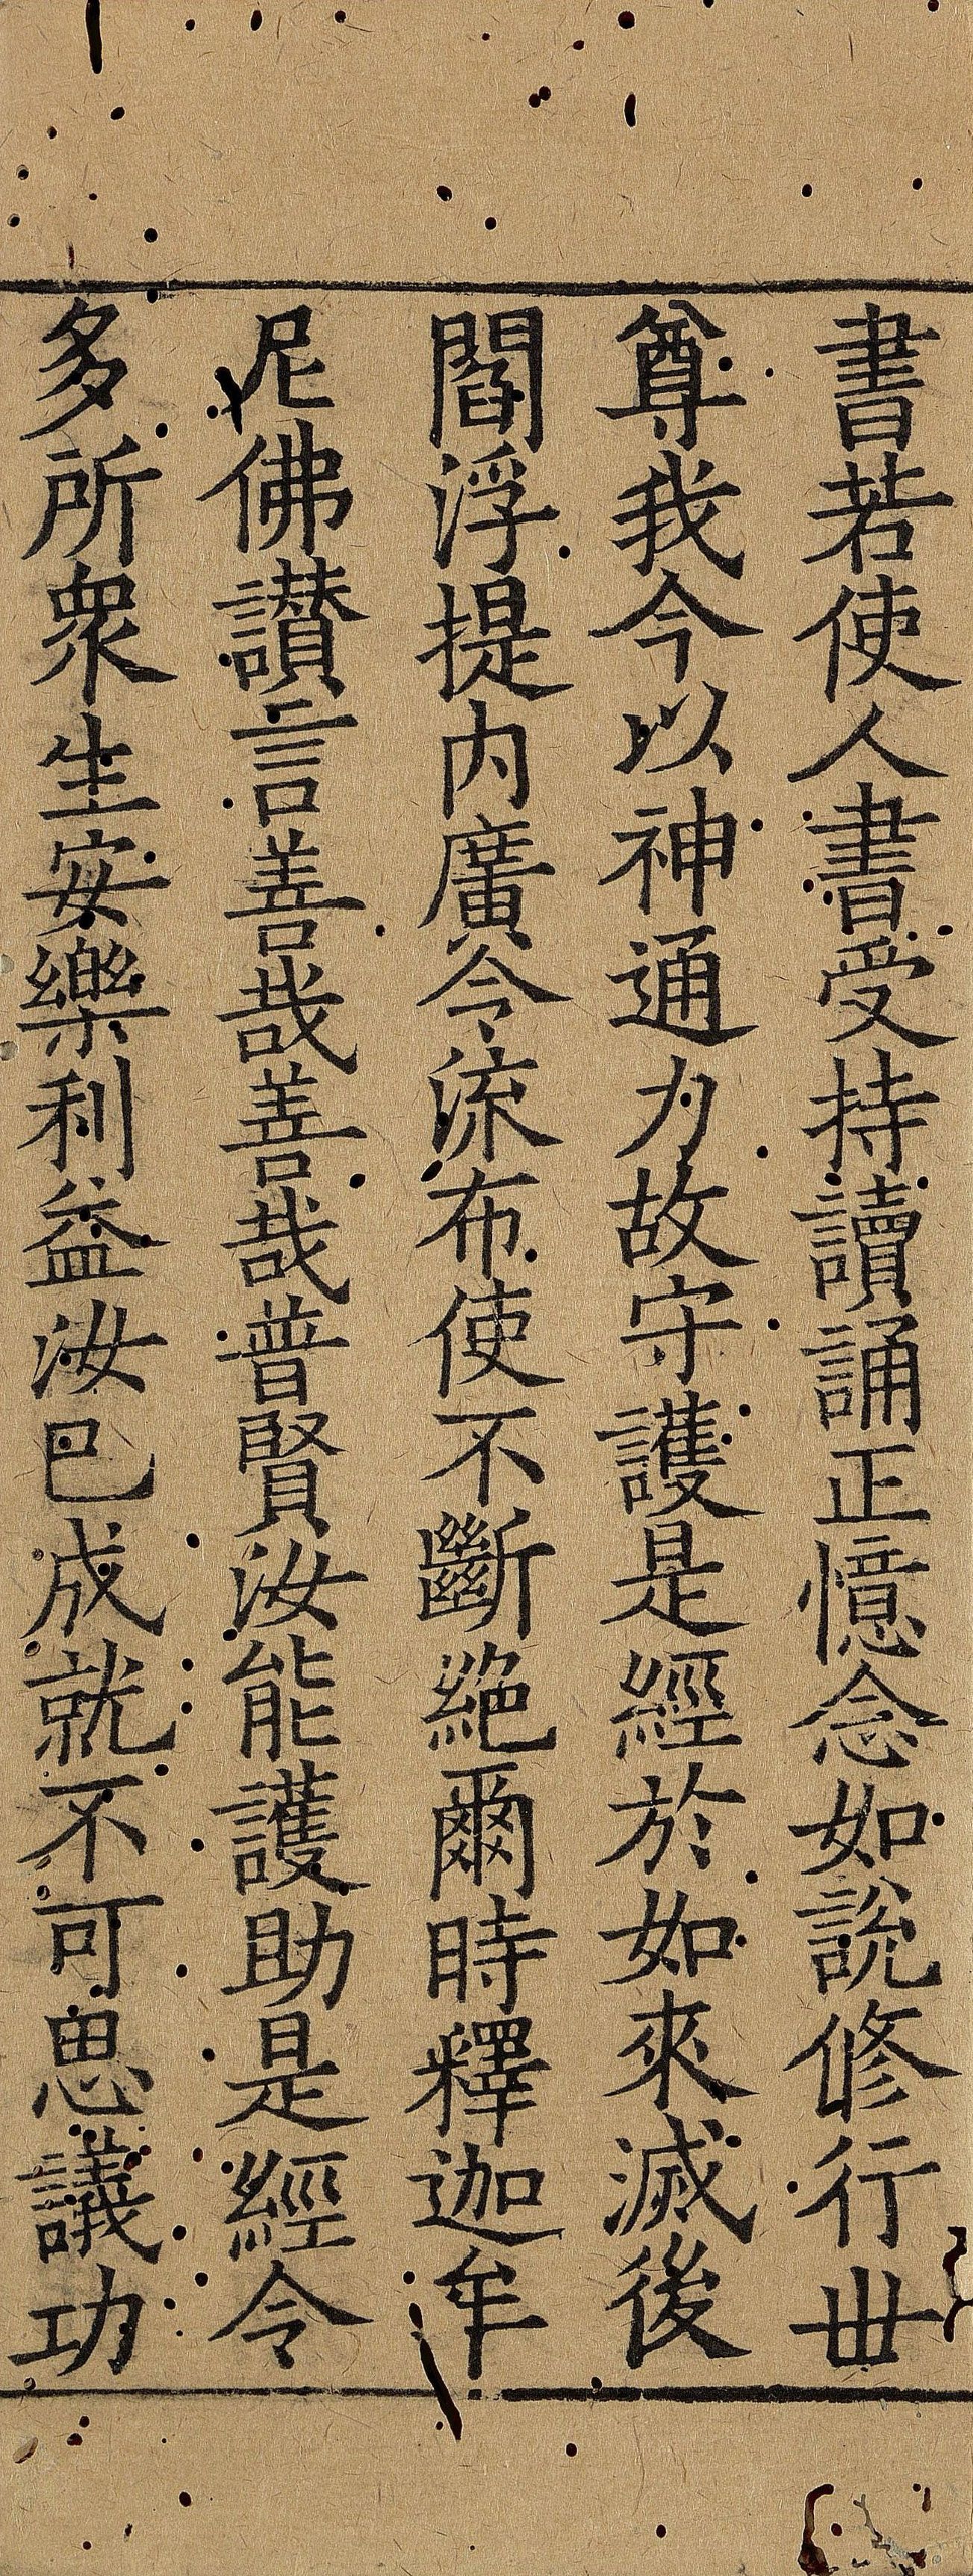 書若使人書受持讀誦正憶念如説修行丗
尊我今以神通力故守護是經於如來滅後
閻浮提内廣令流布使不斷絶爾時釋迦牟
尼佛讃言善哉善哉普賢汝能護助是經令
多所衆生安樂利益汝巳成就不可思議功